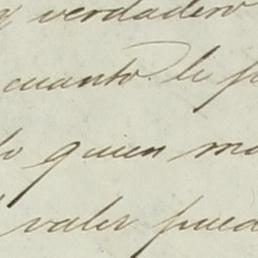 y verdadero
cuanto le p
lo quien ma
valer pued